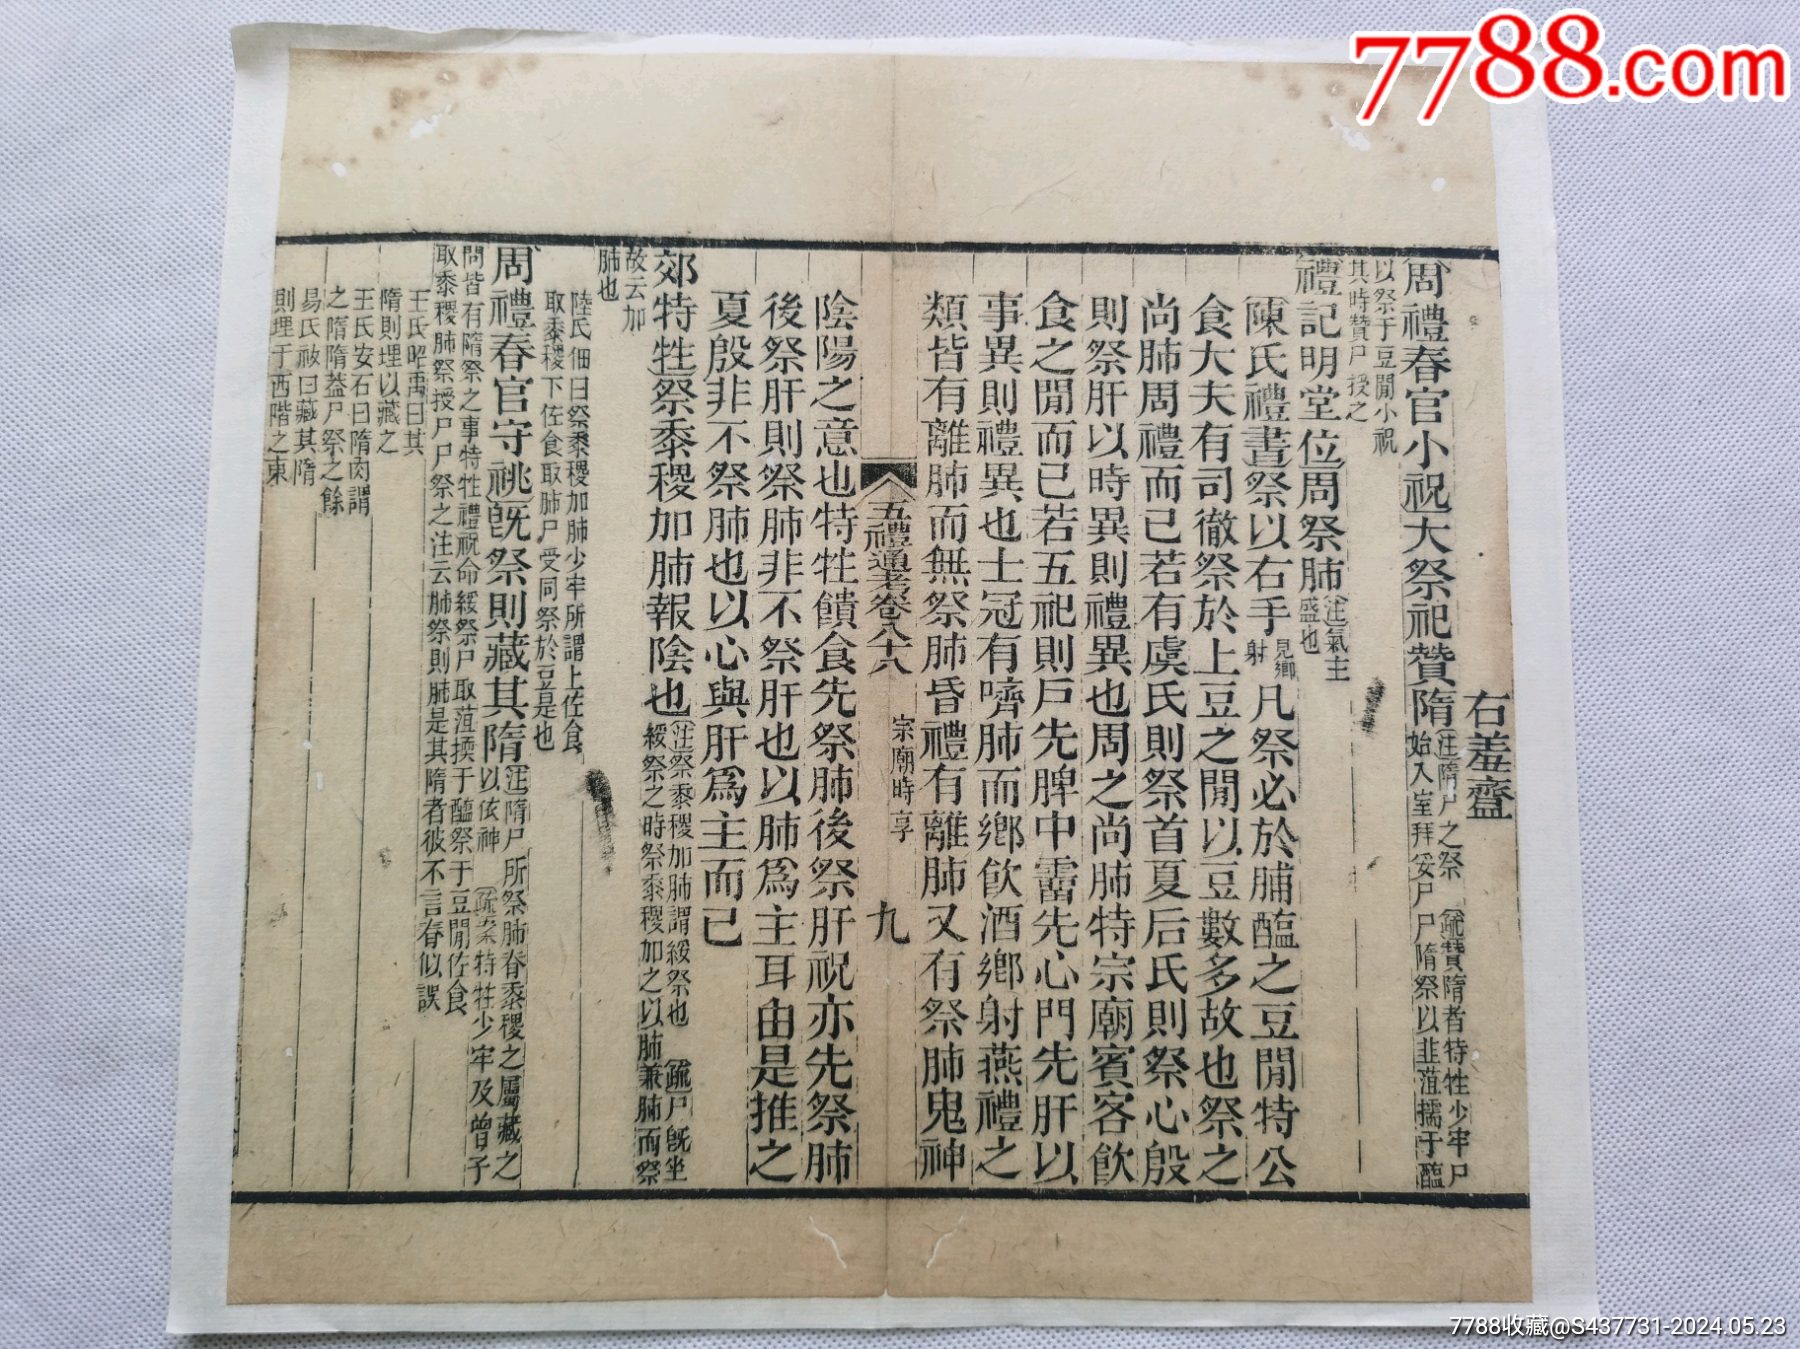 7788.com
右羞齍
周禮春官小祝大祭祀贊隋注隋尸之祭 疏贊隋者特牲少牢尸
始入室拜妥尸尸隋祭以韭菹擩于醢
以祭于豆閒小祝
其時贊尸授之
禮記明堂位周祭肺注氣主
盛也
陳氏禮書祭以右手見鄉
射凡祭必於脯醢之豆閒特公
食大夫有司徹祭於上豆之閒以豆數多故也祭之
尚肺周禮而已若有虞氏則祭首夏后氏則祭心殷
則祭肝以時異則禮異也周之尚肺特宗廟賓客飲
食之閒而已若五祀則戶先脾中霤先心門先肝以
事異則禮異也士冠有嚌肺而鄉飲酒鄉射燕禮之
類皆有離肺而無祭肺昏禮有離肺又有祭肺鬼神
五禮通考卷八十八 宗廟時享 九
陰陽之意也特牲饋食先祭肺後祭肝祝亦先祭肺
後祭肝則祭肺非不祭肝也以肺爲主耳由是推之
夏殷非不祭肺也以心與肝爲主而已
郊特牲祭黍稷加肺報陰也注祭黍稷加肺謂綏祭也 疏尸旣坐
綏祭之時祭黍稷加之以肺兼肺而祭
故云加
肺也
陸氏佃曰祭黍稷加肺少牢所謂上佐食
取黍稷下佐食取肺尸受同祭於豆是也
周禮春官守祧旣祭則藏其隋注隋尸所祭肺脊黍稷之屬藏之
以依神 疏案特牲少牢及曾子
問皆有隋祭之事特牲禮祝命綏祭尸取菹擩于醢祭于豆閒佐食
取黍稷肺祭授尸尸祭之注云肺祭則肺是其隋者彼不言脊似誤
王氏昭禹曰其
隋則埋以藏之
王氏安石曰隋肉謂
之隋隋蓋尸祭之餘
易氏祓曰藏其隋
則埋于西階之東
7788收藏@S437731-2024.05.23